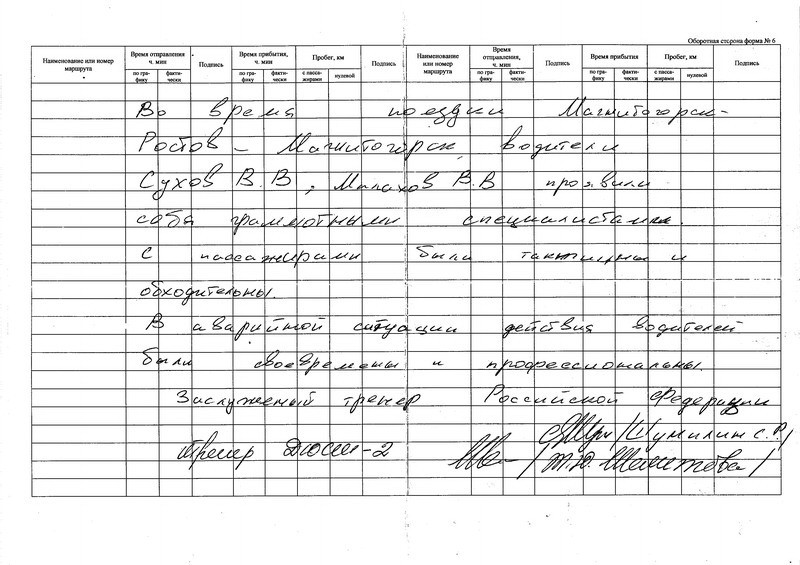 Оборотная сторона форма № 6
Наименование или номер маршрута
Время отправления ч. мин
по графику
фактически
Подпись
Время прибытия, ч. мин
по графику
фактически
Пробег, км
с пассажирами
нулевой
Подпись
Наименование или номер маршрута
Время отправления, ч. мин
по графику
фактически
Подпись
Время прибытия
по графику
фактически
Пробег, км
с пассажирами
нулевой
Подпись
Во время поездки Магнитогорск-
Ростов - Магнитогорск водители
Сухов В.В, Малахов В.В проявили
себя грамотными специалистами.
С пассажирами были тактичны и
обходительны.
В аварийной ситуации действия водителей
были своевремены и профессиональны.
Заслуженый тренер Российской Федерации
/Шумилин С.Р./
тренер ДЮСШ-2 /Т.Ю. /